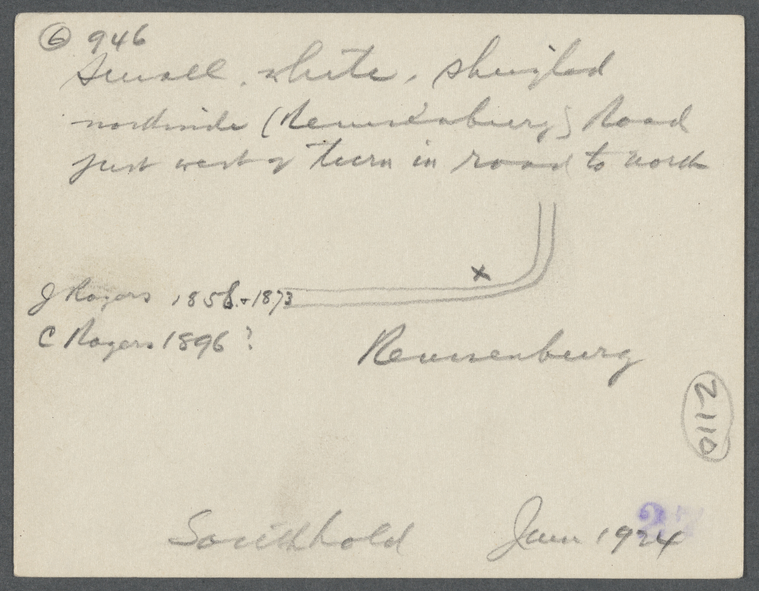 6 946
Small, white, shingled
northside (Remsenburg) Road
just west of turn in road to north
x
J Rogers 1858 + 1873
C Rogers 1896?
Remsenburg
2110
Southhold June 1924